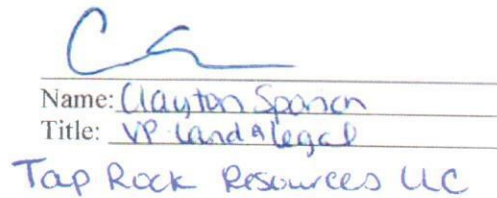 Name: Clayton Sporich
Title: VP Land & Legal
Tap Rock Resources LLC